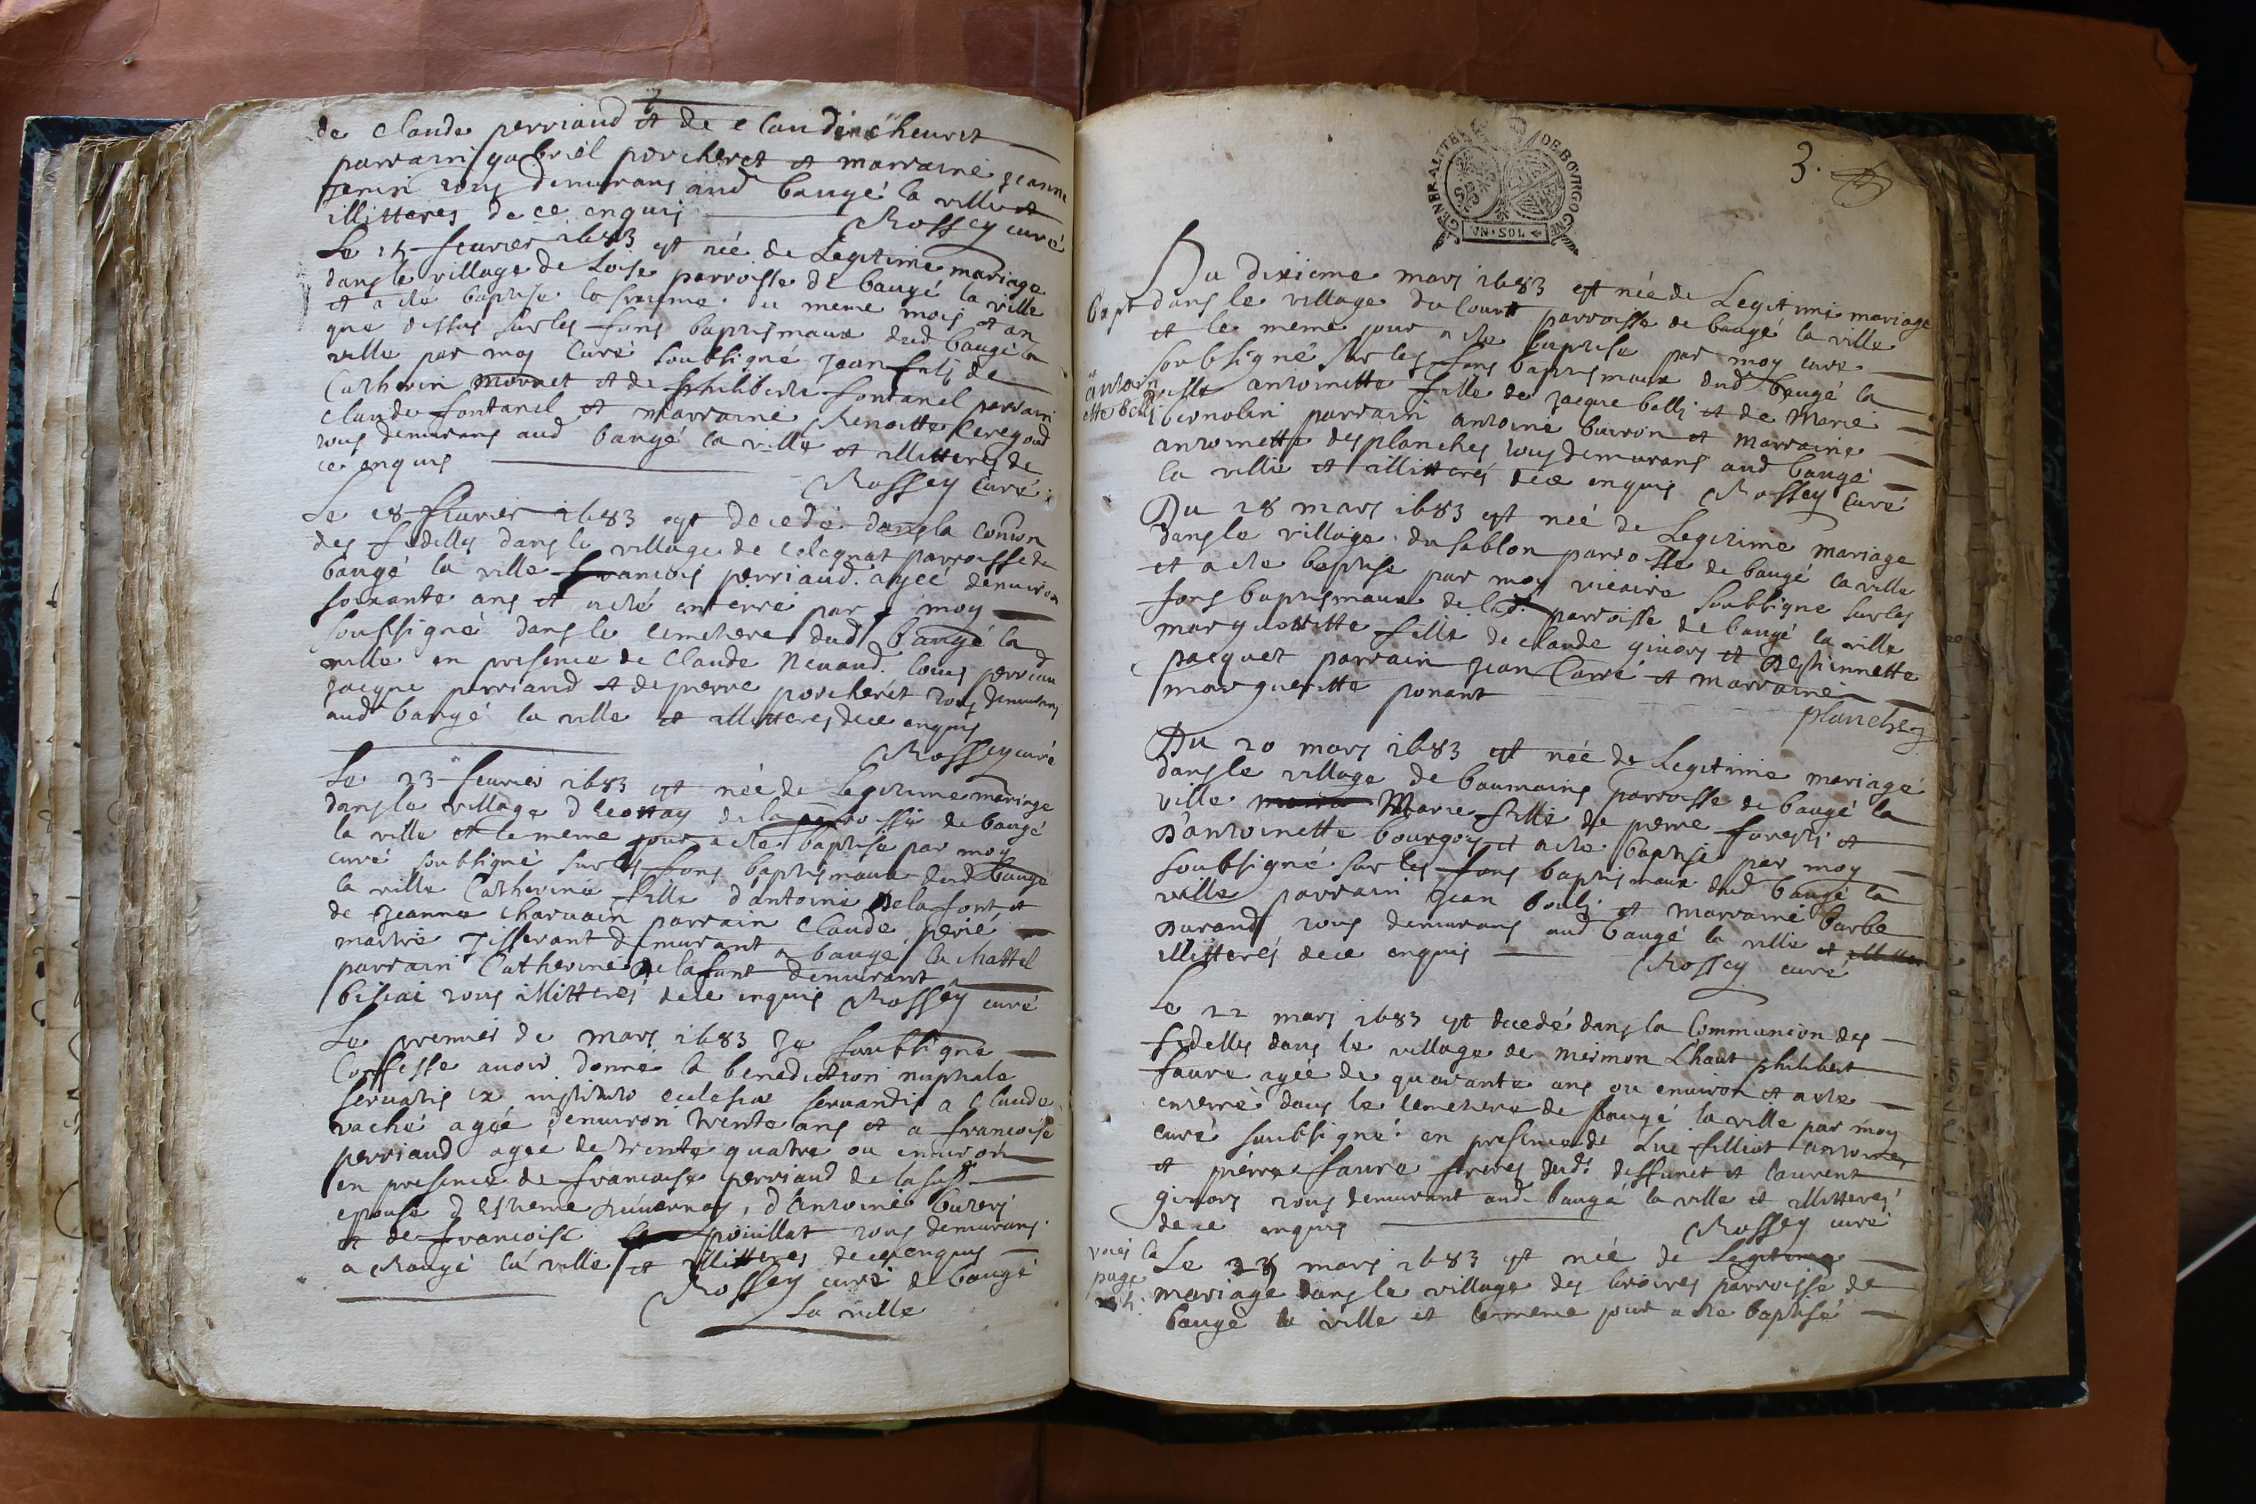 de claude perriaud et de claudine heurit
parrain gabriel porcheret et marraine jeanne
tous demurans aud baugé la ville et
illitteres de ce enquis Rossey curé
Le 15 feurier 1683 est née de Legitime mariage
dans le village de Loise parroisse de baugé la ville
et a esté baptise le du meme mois et an
que dessus sur les fons baptismaux dud baugé la
ville par moy Curé soubsigné jean fils de
Catherin mornet et de philiberte fontanel parrain
Claude fontanel et marraine Benoitte
tous demurans aud baugé la ville et illitteres de
ce enquis
Rossey Curé
Le 18 feurier 1683 est decedé dans la Conion
des fidelles dans le village de Colognat parroisse de
baugé la ville francois perriaud agee denuiron
soixante ans et a esté enterré par moy
soubsigné dans le cemetiere dud baugé la
ville en presence de Claude Renaud Louis perriau
jacque perriaud et de pierre porcheret tous demurans
aud baugé la ville et illitteres de ce enquis
Rossey curé
Le 23 feurier 1683 est née de Legitime mariage
dans le village de la parroisse de baugé
la ville et le meme jour a esté baptisé par moy
curé soubsigné sur les fons baptismaux dud baugé
la ville Catherine fille d'antoine Delafont et
de Jeanne Charuain parrain Claude perié
maistre Tisserant demurant a baugé la chattel
parrain Catherine Delafont demurant
tous illitterés de ce enquis Rossey curé
Le premier de mars 1683 Je soubsigné
Confesse auoir donné la benediction nuptiale
seruatis ex instituto eclesiae seruandis a Claude
vaché agée denuiron trente ans et a francoise
perriaud agée de trente quatre ou enuiron
en presence de francoise perriaud de la susd
epouse d Estiene d'Antoine
et de francoise pouillat tous demurans
a Baugé la ville et illitteres de ce enquis
Rossey curé de baugé
La ville
GENERALITE DE BOVRGOGNE
VN·SOL
3.
Du dixieme mars 1683 est née de Legitime mariage
bapt dans le village du Court parroisse de baugé la ville
et le meme jour a esté baptisé par moy curé
soubsigné sur les fons baptismaux dud baugé la
antoin
ette belli
ville antoinette fille de jacque belli et de Marie
bernolin parrain antoine buiron et marraine
antoinette desplanches tous demurans aud baugé
la ville et illitterés de ce enquis Rossey Curé
Du 18 mars 1683 est née de Legitime mariage
dans le village du sablon parroisse de baugé la ville
et a esté baptisé par moy vicaire soubsigné sur les
fons baptismaux de lad parroisse de baugé la ville
marguerite fille de claude giuors et Destiennette
pacquet parrain jean Carré et marraine
marguerite ponant
planches
Du 20 mars 1683 est née de Legitime mariagé
dans le village de baumains parroisse de baugé la
ville Marie fille de pierre et
D'antoinette bourgois et a esté baptisé par moy
soubsigné sur les fons baptismaux dud baugé la
ville parrain jean et marraine barbe
Durand tous demurans aud baugé la ville et
illitterés de ce enquis Rossey curé
Le 22 mars 1683 est decedé dans la Communion des
fidelles dans le village de mermon Lhaut philibert
faure agée de quarante ans ou enuiron et a esté
enterré dans le cemetiere de baugé la ville par moy
curé soubsigné en presence de filliot antoine
et pierre faure freres dud deffunct et laurent
giuors tous demurant aud baugé la ville et illitterés
de ce enquis Rossey curé
voies la
page
Le mars 1683 est née de Legitime
mariage dans le village des parroisse de
baugé la ville et le meme jour a esté baptisé